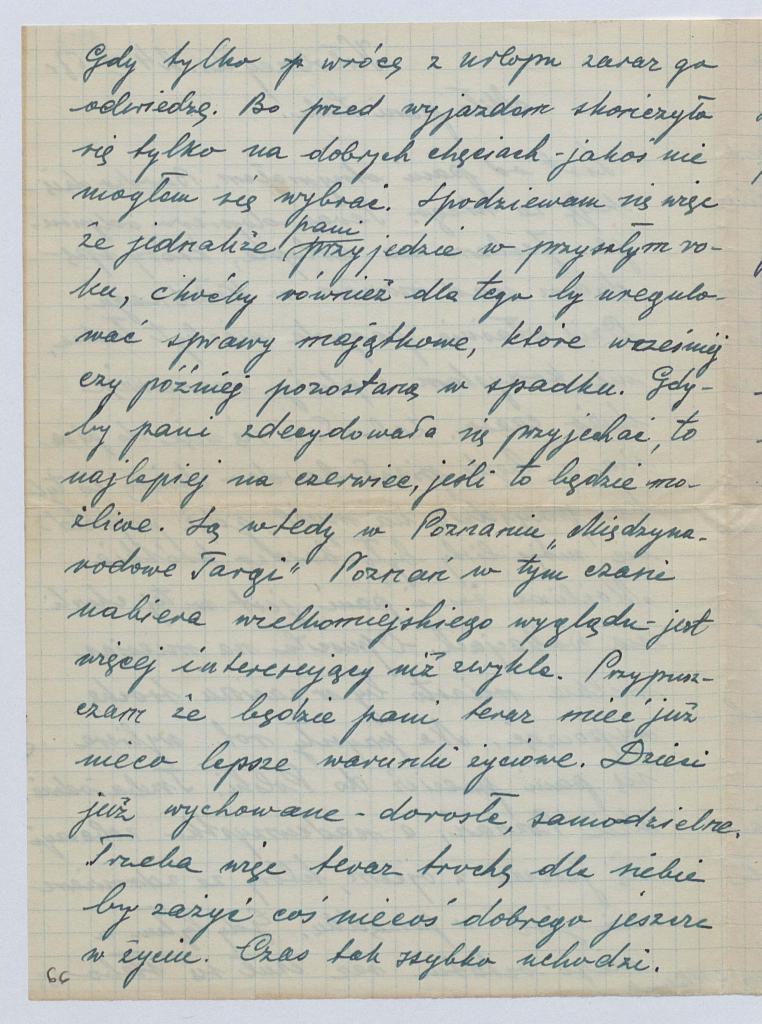 Gdy tylko wrócę z urlopu zaraz go
odwiedzę. Bo przed wyjazdem skończyło
się tylko na dobrych chęciach - jakoś nie
mogłem się wybrać. Spodziewam się więc
pani
że jednakże przyjedzie w przyszłym ro-
ku, choćby również dla tego by uregulo-
wać sprawy majątkowe, które wcześniej
czy później pozostaną w spadku. Gdy-
by pani zdecydowała się przyjechać, to
najlepiej na czerwiec, jeśli to będzie mo-
żliwe. Są wtedy w Poznaniu „Międzyna-
rodowe Targi" Poznań w tym czasie
nabiera wielkomiejskiego wyglądu - jest
więcej interesujący niż zwykle. Przypusz-
czam że będzie pani teraz mieć już
nieco lepsze warunki życiowe. Dzieci
już wychowane - dorosłe, samodzielne.
Trzeba więc teraz trochę dla siebie
by zażyć coś niecoś dobrego jeszcze
w życiu. Czas tak szybko uchodzi.
66